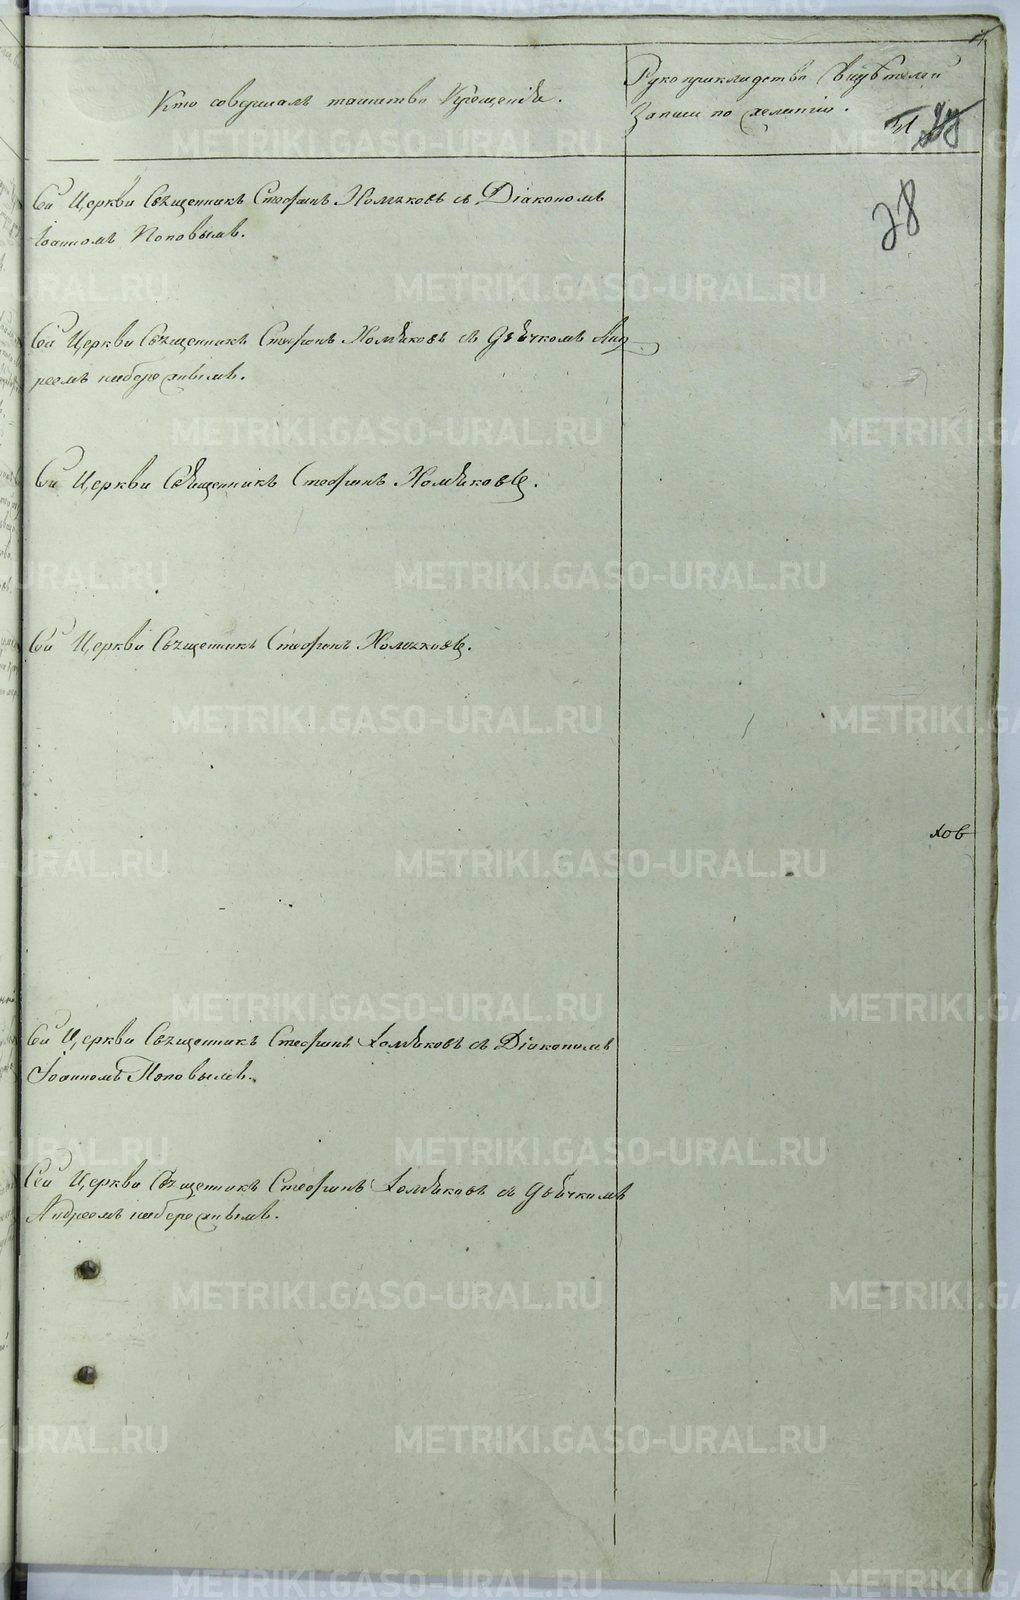 Кто совершалъ таинство Крещенiя.
Рукоприкладство свидѣтелей
записи по желанiю.
28
Сей Церкви Священникъ Стефанъ Хомяковъ съ Дiакономъ
Iоанномъ Поповымъ.
Сей Церкви Священникъ Стефанъ Хомяковъ съ Дьячкомъ Анд
реемъ
Сей Церкви Священникъ Стефанъ Хомяковъ.
Сей Церкви Священникъ Стефанъ Хомяковъ.
ховъ
Сей Церкви Священникъ Стефанъ Хомяковъ съ Дiакономъ
Iоанномъ Поповымъ.
Сей Церкви Священникъ Стефанъ Хомяковъ съ Дьячкомъ
Андреемъ
METRIKI.GASO-URAL.RU